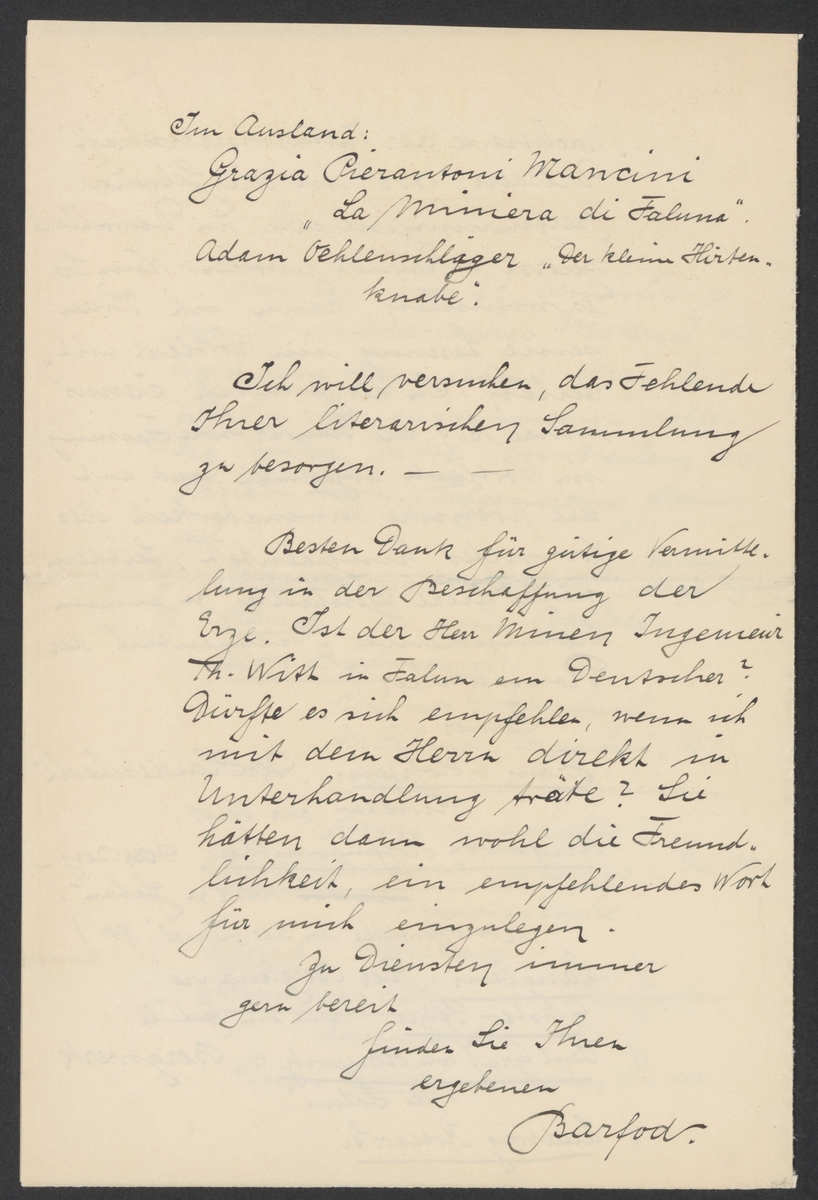 Im Ausland:
Grazia Pierantoni Mancini
„La Miniera di Faluna“.
Adam Oehlenschläger „Der kleine Hirten-
knabe“.
Ich will versuchen, das Fehlende
Ihrer literarischen Sammlung
zu besorgen. — —
Besten Dank für gütige Vermitte-
lung in der Beschaffung der
Erze. Ist der Herr Minen Ingenieur
Th. Witt in Falun ein Deutscher?
Dürfte es sich empfehlen, wenn ich
mit dem Herrn direkt in
Unterhandlung träte? Sie
hätten dann wohl die Freund-
lichkeit, ein empfehlendes Wort
für mich einzulegen.
Zu Diensten immer
gern bereit
finden Sie Ihren
ergebenen
Barfod.